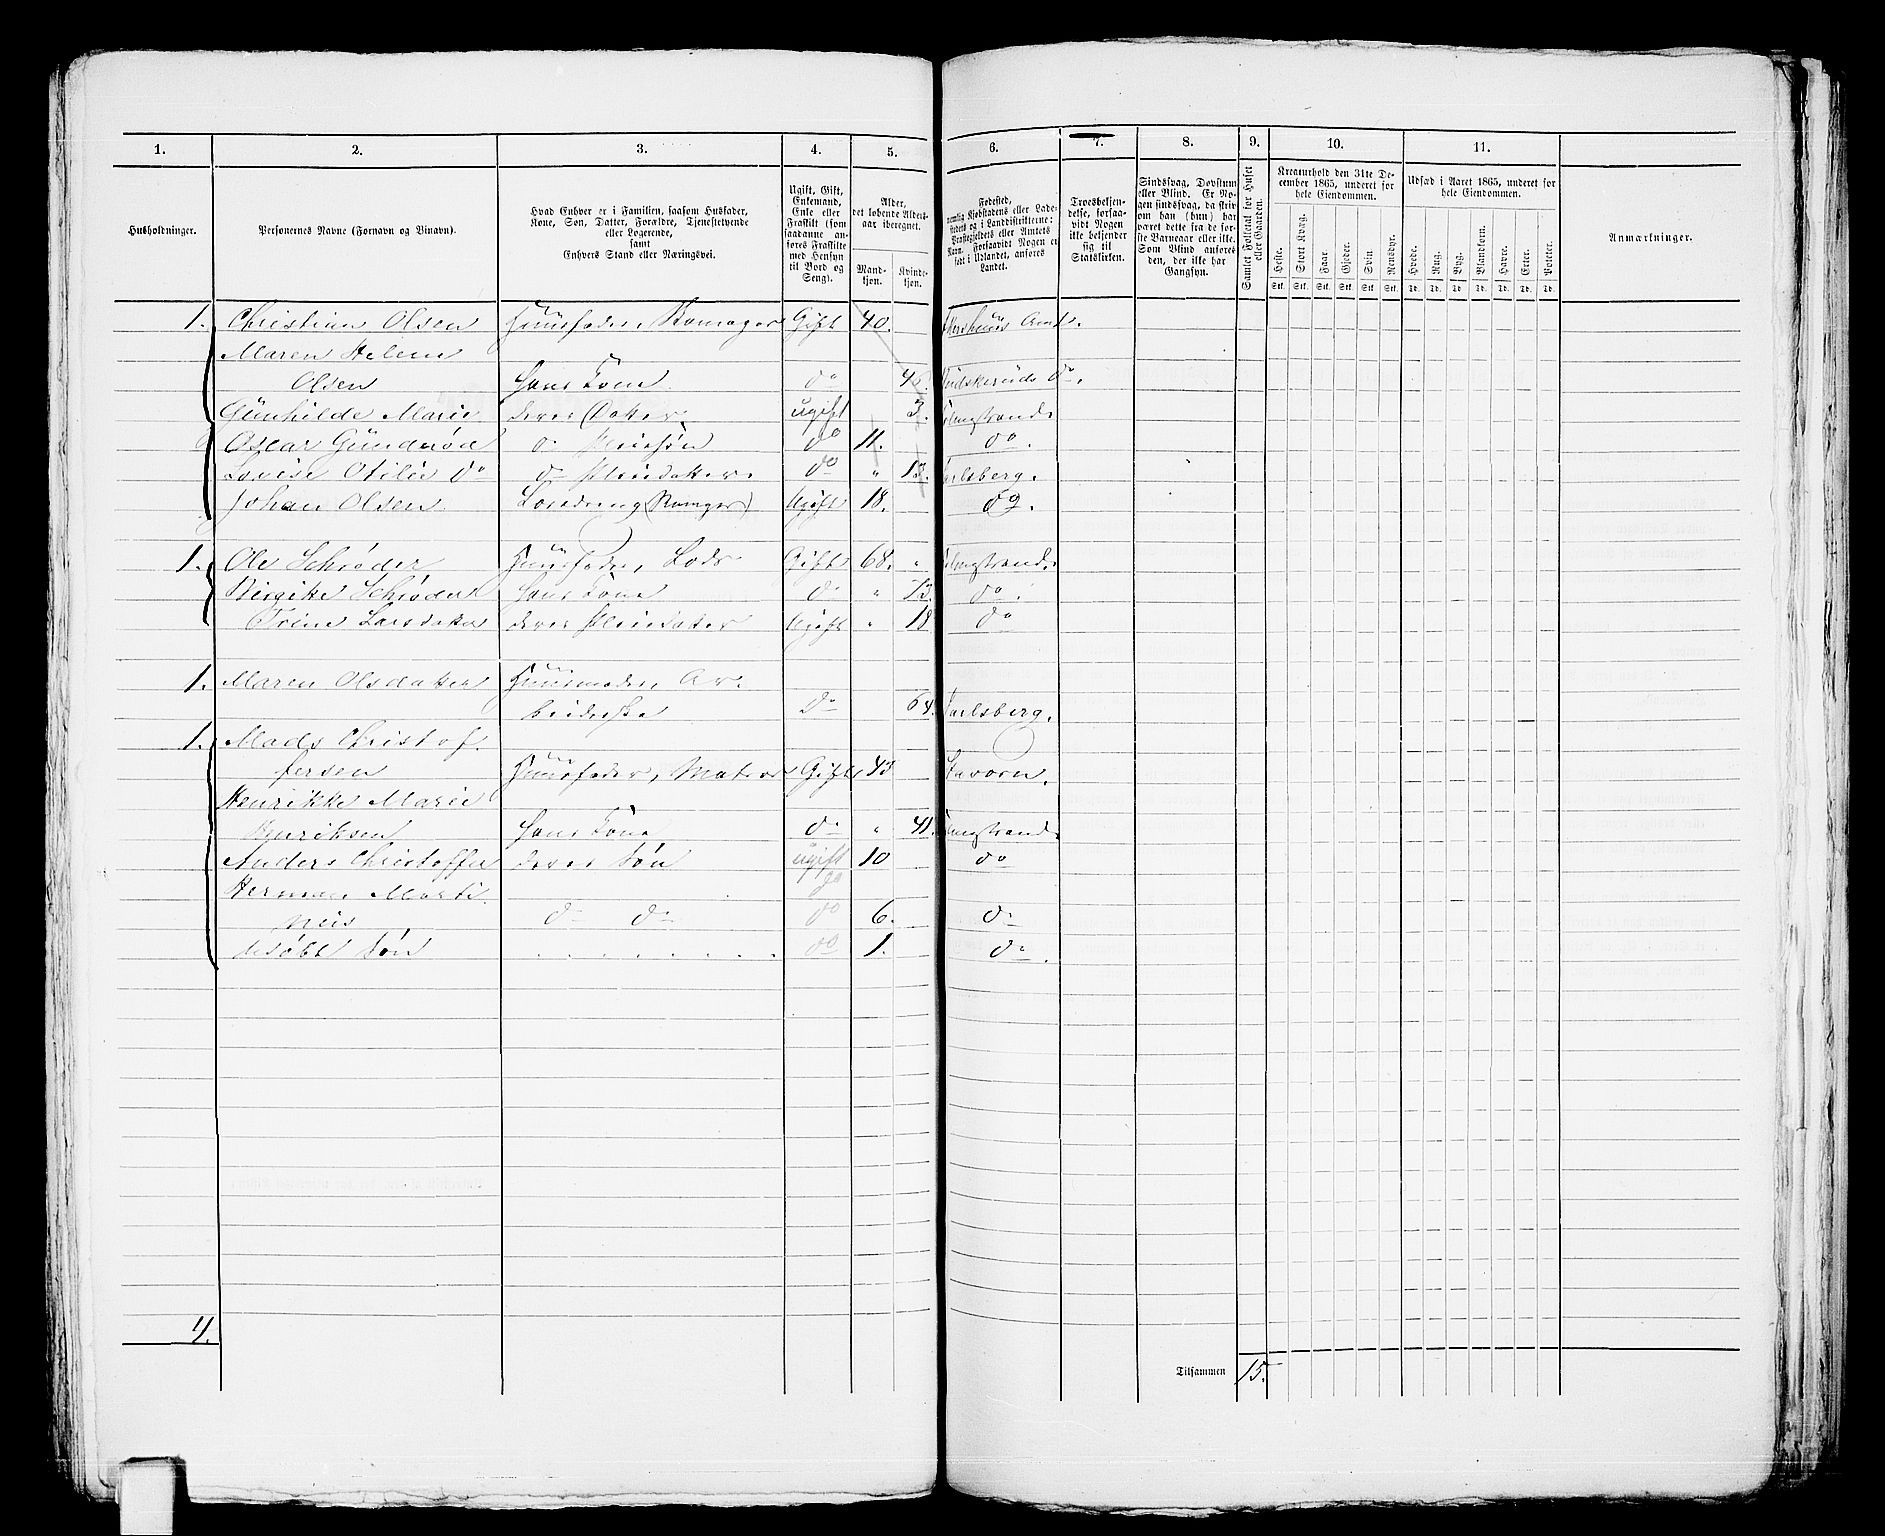 1. 2. 3. 4. 5. 6. 7. 8. 9. 10. 11.
Husholdninger.
Personernes Navne (Fornavn og Tilnavn).
Hvad Enhver er i Familien, saasom Husfader,
Kone, Søn, Datter, Forældre, Tjenestetyende
eller Logerende,
samt
Enhvers Stand eller Næringsvei.
Ugift, Gift,
Enkemand,
Enke eller
Fraskilt (som
saadanne an-
føres Fraskilte
med Hensyn
til Bord og
Seng).
Alder,
det løbende Alders-
aar iberegnet.
Mand-
kjøn.
Kvinde-
kjøn.
Fødested,
nemlig Kjøbstadens eller Lade-
stedets og i Landdistrikterne:
Præstegjeldets eller Amtets
Navn. Forsaavidt Nogen er
født i Udlandet, anføres
Landet.
Troesbekjen-
delse, forsaa-
vidt Nogen
ikke bekjender
sig til
Statskirken.
Sindssvag, Døvstum
eller Blind. Er No-
gen sindssvag, da skriv
om han (hun) har
været dette fra de for-
ste Barneaar eller ikke.
Som Blind anføres
den, der ikke har
Gangsyn.
Samlet Folketal for Huset
eller Gaarden.
Kreaturhold den 31te De-
cember 1865, underet for
hele Eiendommen.
Heste. Stort Kvæg. Faar. Gjeder. Svin. Rensdyr.
Stk. Stk. Stk. Stk. Stk. Stk.
Udsæd i Aaret 1865, underet for
hele Eiendommen.
Hvede. Rug. Byg. Blandkorn. Havre. Erter. Poteter.
Td. Td. Td. Td. Td. Td. Td.
Anmærkninger.
1. Christian Olsen Huusfader, Gift 40. Akershuus Amt.
Maren Helene
Olsen Hans Kone do Buskeruds do.
Gunhilde Marie deres Datter ugift 3. Holmestrand
Oscar Gunderød do Pleiesøn do 11. do
Lovise Otilie do do Pleiedatter do " 13. Jarlsberg.
Johan Olsen Ugift 18. do.
1. Ole Schrøder Huusfader, Lods Gift 68. " Holmestrand
Birgitte Schrøder Hans Kone do " 73. do.
Trine Larsdatter deres Pleiedatter Ugift " 18 do
1. Maren Olsdatter Huusmoder, Ar-
beiderske do 64. Jarlsberg.
1. Mads Christof-
fersen Huusfader, Matros Gift 43 Stavern.
Henrikke Marie
Henriksen Hans Kone do " 41. Holmestrand
Anders Christoffer deres Søn ugift 10 do
Herman Marti- do
nus do do do 6. do
udøbt Søn . . . . . . . . do 1. do.
4.
Tilsammen 15.